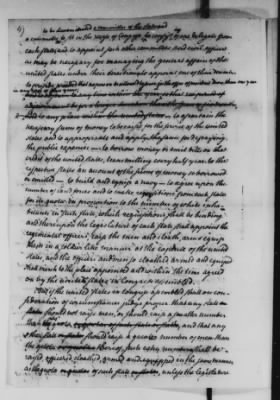 to be denominated a committee of the states and
to consist of one delegate from
each state, and to appoint such other committees and civil officers
as may be necessary for managing the general affairs of the
united states under their direction to appoint one of their number
to preside, provided that no person be allowed to serve in the office of president more than one year
in any term of three years
to any place within the united states to ascertain the
necessary sums of money to be raised for the service of the united
states and to appropriate and apply the same for defraying
the public expences to borrow money or emit bills on the
credit of the united states, transmitting every half year to the
respective states an account of the sums of money so borrowed
or emitted to build and equip a navy to agree upon the
number of land forces and to make requisitions from each state
for its quota in proportion to the number of white inhabitants
in such state, which requisitions shall be binding
and thereupon the legislature of each state shall appoint the
regimental officers, raise the men and cloath, arm and equip
them in a soldier like manner at the expence of the united
states and the officers and men so cloathed armed and equiped
shall march to the place appointed and within the time agreed
on by the united states in Congress assembled.
But if the united states in Congress assembled shall on consideration
of circumstances judge proper that any state
should not raise men, or should raise a smaller number
than its quota and that any
state should raise a greater number of men than
the quota thereof, such extra number shall be
raised, officered cloathed, armed and equipped in the same manner
as the quota of such state, unless the legislature